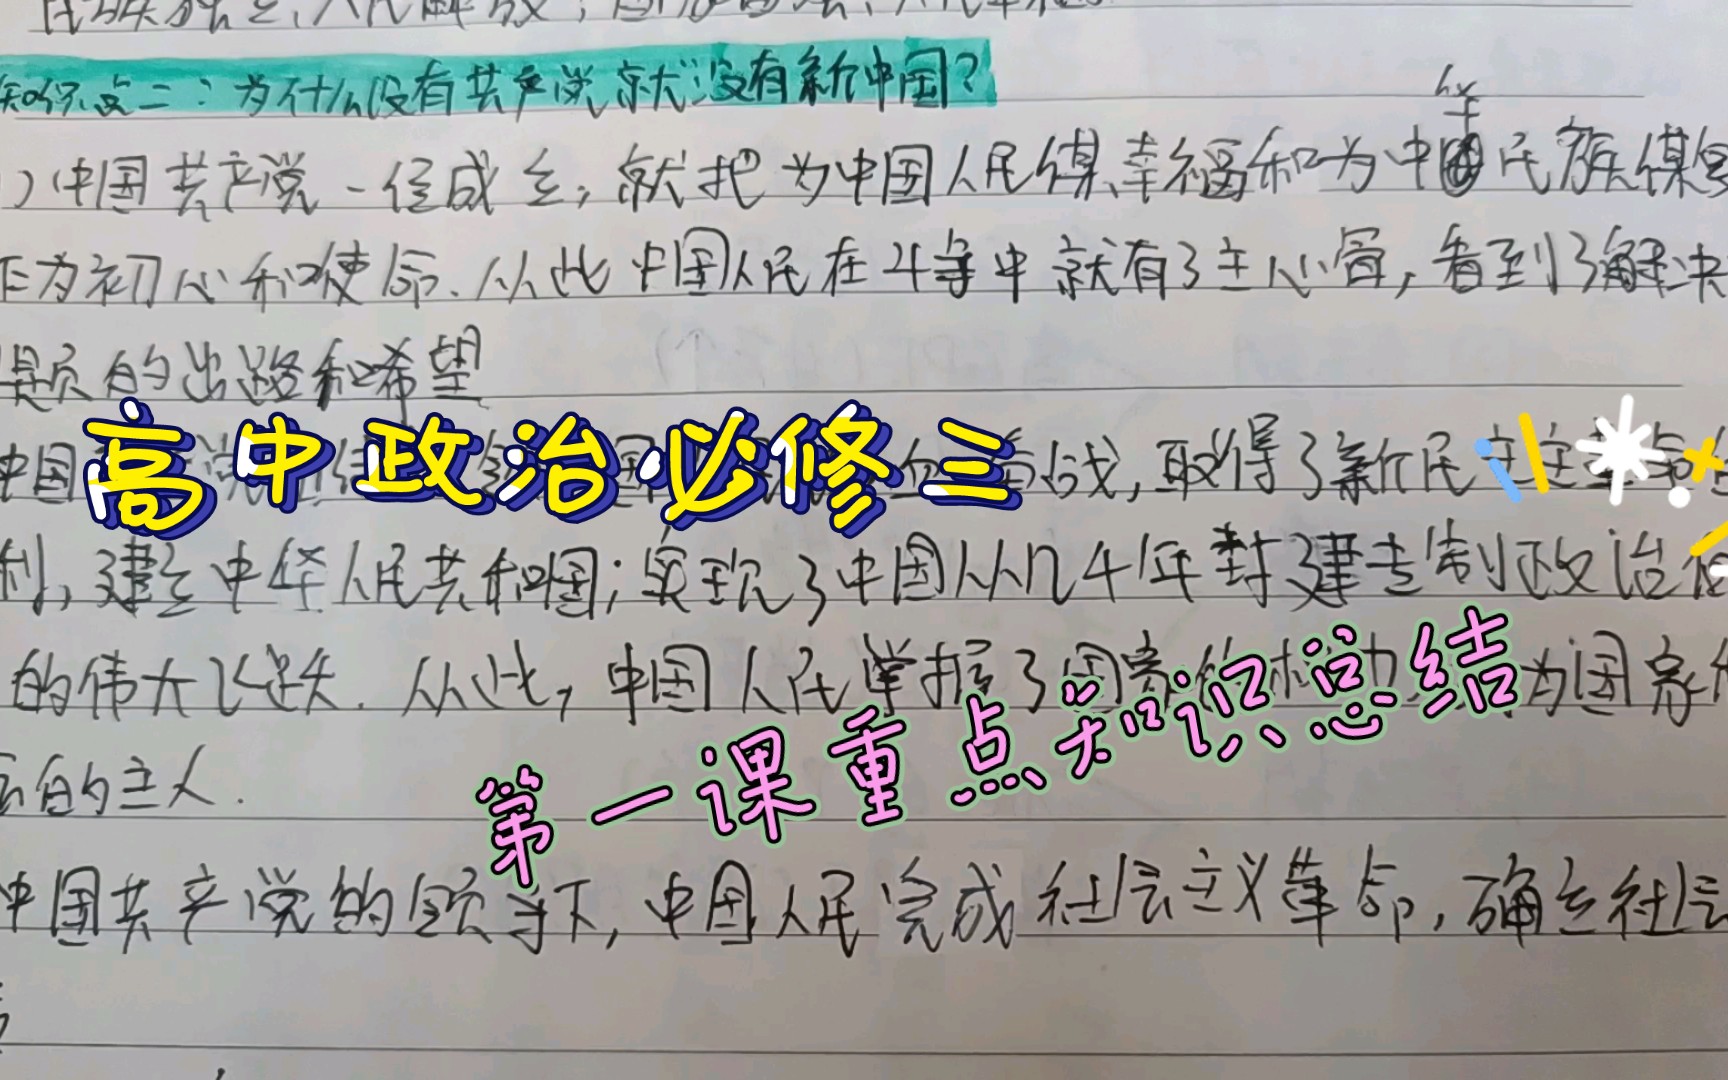 知识点二：为什么没有共产党就没有新中国？
中国共产党一经成立，就把为中国人民谋幸福和为中国民族谋
作为初心和使命.从此中国人民在斗争中就有了主心骨，看到了解决
题的出路和希望
高中政治必修三
中国 战，取得了新民
利，建立中华人民共和国；实现了中国从几千年封建专制政治
的伟大飞跃.从此，中国人民掌握了国家的 为国家
的主人.
第一课重点知识总结
中国共产党的领导下，中国人民完成社会主义革命，确立社会